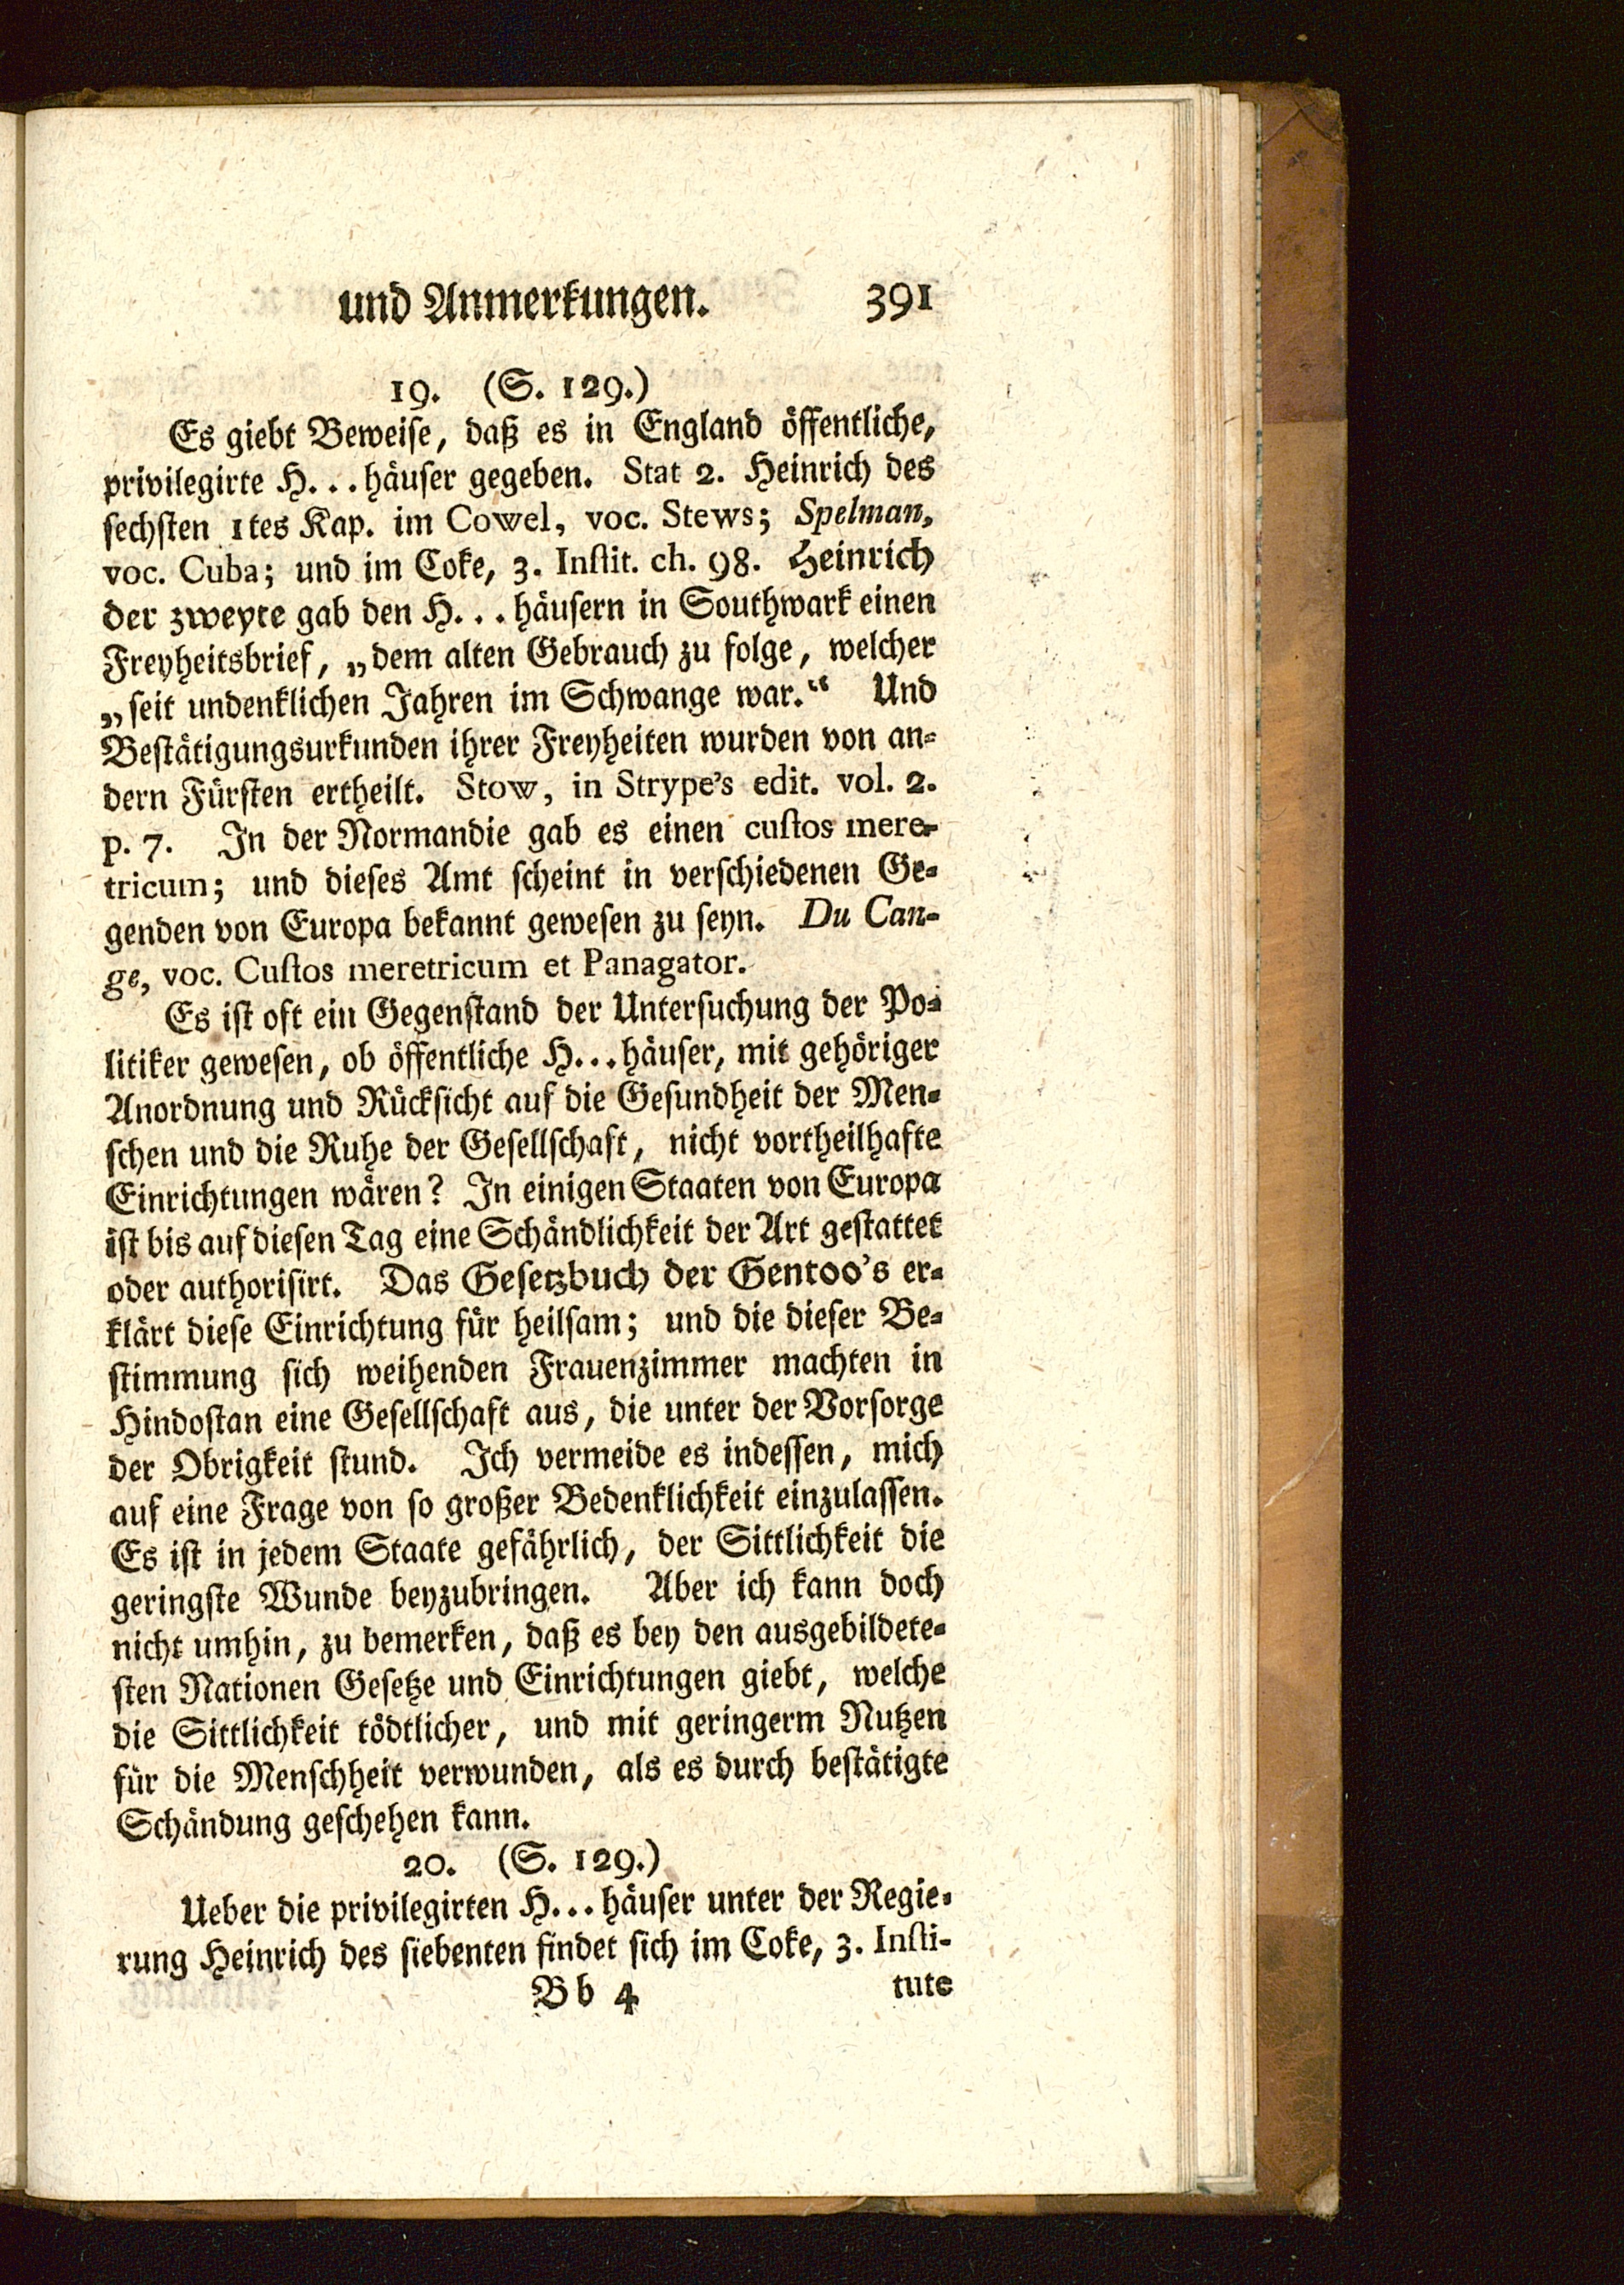 und Anmerkungen. 391
19. (S. 129.)
Es giebt Beweise, daß es in England öffentliche,
privilegirte H...häuser gegeben. Stat 2. Heinrich des
sechsten 1tes Kap. im Cowel, voc. Stews; Spelman,
voc. Cuba; und im Coke, 3. Instit. ch. 98. Heinrich
der zweyte gab den H...häusern in Southwark einen
Freyheitsbrief, „dem alten Gebrauch zu folge, welcher
„seit undenklichen Jahren im Schwange war.“ Und
Bestätigungsurkunden ihrer Freyheiten wurden von an-
dern Fürsten ertheilt. Stow, in Strype's edit. vol. 2.
p. 7. In der Normandie gab es einen custos mere-
tricum; und dieses Amt scheint in verschiedenen Ge-
genden von Europa bekannt gewesen zu seyn. Du Can-
ge, voc. Custos meretricum et Panagator.
Es ist oft ein Gegenstand der Untersuchung der Po-
litiker gewesen, ob öffentliche H...häuser, mit gehöriger
Anordnung und Rücksicht auf die Gesundheit der Men-
schen und die Ruhe der Gesellschaft, nicht vortheilhafte
Einrichtungen wären? In einigen Staaten von Europa
ist bis auf diesen Tag eine Schändlichkeit der Art gestattet
oder authorisirt. Das Gesetzbuch der Gentoo's er-
klärt diese Einrichtung für heilsam; und die dieser Be-
stimmung sich weihenden Frauenzimmer machten in
Hindostan eine Gesellschaft aus, die unter der Vorsorge
der Obrigkeit stund. Ich vermeide es indessen, mich
auf eine Frage von so großer Bedenklichkeit einzulassen.
Es ist in jedem Staate gefährlich, der Sittlichkeit die
geringste Wunde beyzubringen. Aber ich kann doch
nicht umhin, zu bemerken, daß es bey den ausgebildete-
sten Nationen Gesetze und Einrichtungen giebt, welche
die Sittlichkeit tödtlicher, und mit geringerm Nutzen
für die Menschheit verwunden, als es durch bestätigte
Schändung geschehen kann.
20. (S. 129.)
Ueber die privilegirten H...häuser unter der Regie-
rung Heinrich des siebenten findet sich im Coke, 3. Insti-
Bb 4 tute